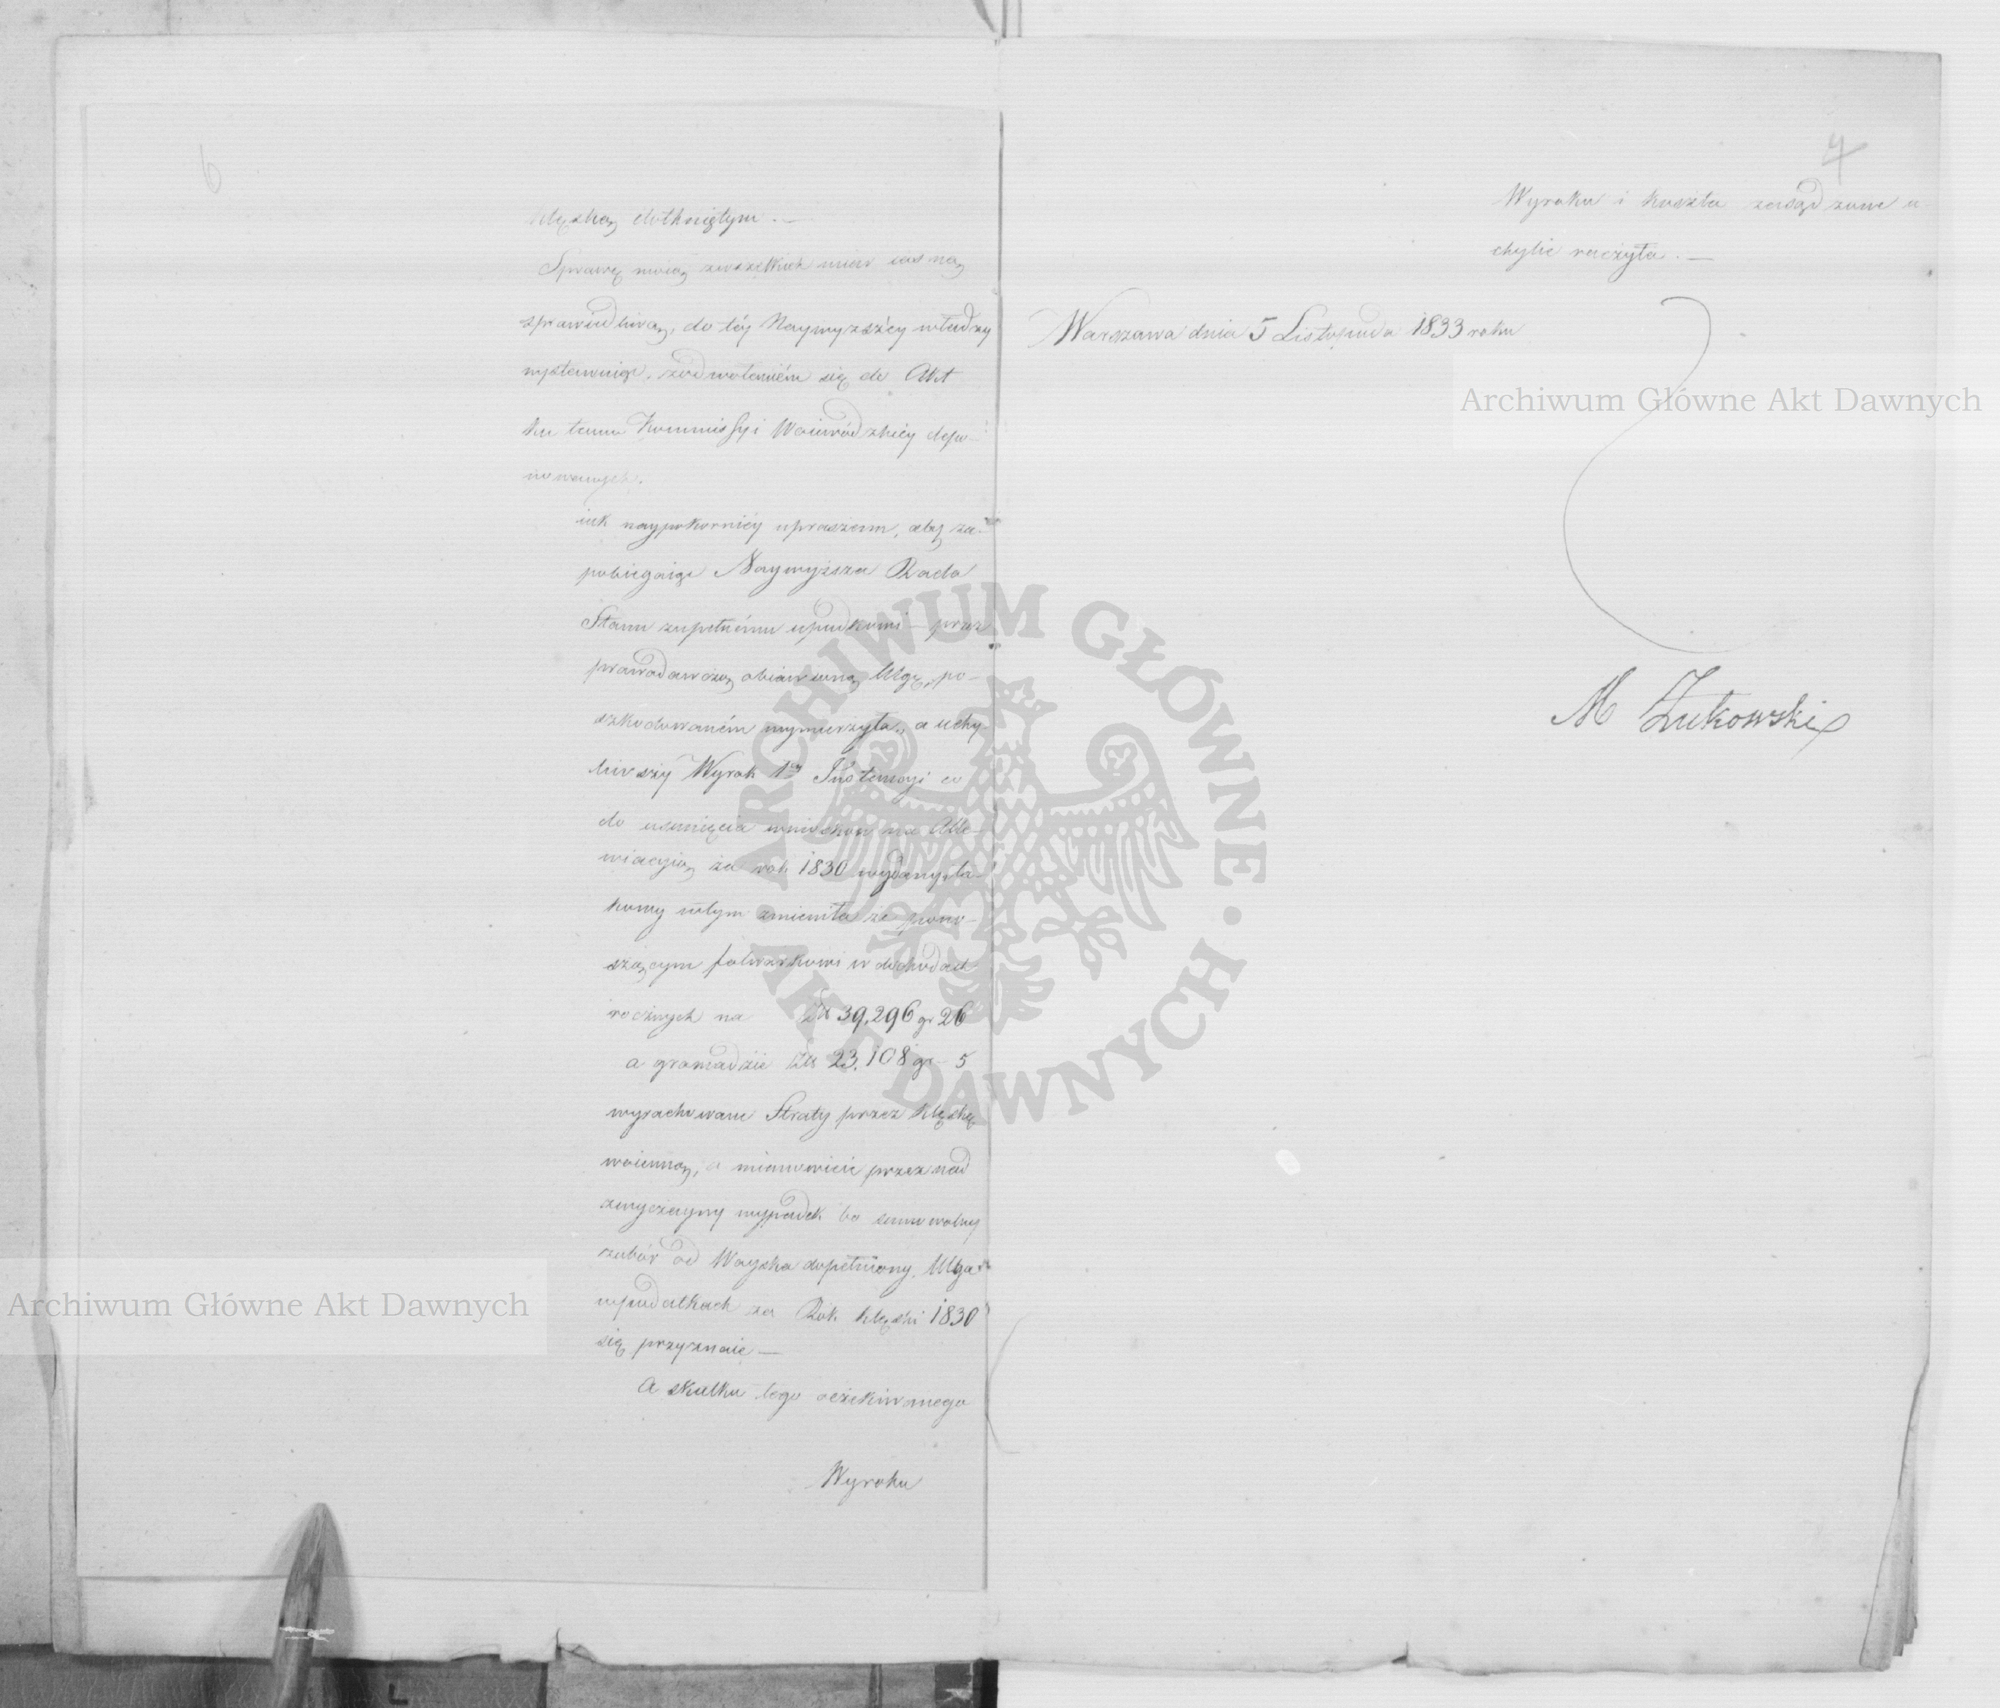 6
klęską dotkniętym. —
Sprawę moią zwszelkich miar iasną
sprawiedliwą, do téy Naywyzszéy władzy
wystawuię, zodwołaniém się do Akt
ku temu Kommissyi Woiewódzkiéy depo-
nowanych.
iak naypokorniéy upraszam, aby za-
pobiegaiąc Naywyższa Rada
Stanu zupełnému upadkowi — przez
prawodawczą obiawioną Ulgę, po-
szkodowaném wymierzyła, a uchy-
liwszy Wyrok 1éy Instancyi co
do usunięcia wniosków na Alle-
wiacyią za rok 1830 wydany, ta-
kowy wtym zmieniła że pono-
szącym folwarkowi w dochodach
rocznych na Zł 39,296 gr 26
a gromadzie Zł 23,108 gr 5
wyrachowane Straty przez klęskę
woienną, a mianowicie przez nad
zwyczayny wypadek bo samowolny
zabór od Woyska dopełniony, Ulga
wpodatkach za Rok klęski 1830
się przyznaie —
A skutku tego oczekiwanego
Wyroku
7
Wyroku i koszta zasądzone u-
chylić raczyła. —
Warszawa dnia 5 Listopada 1833 roku
M Żukowski
Archiwum Główne Akt Dawnych
Archiwum Główne Akt Dawnych
ARCHIWUM GŁÓWNE AKT DAWNYCH